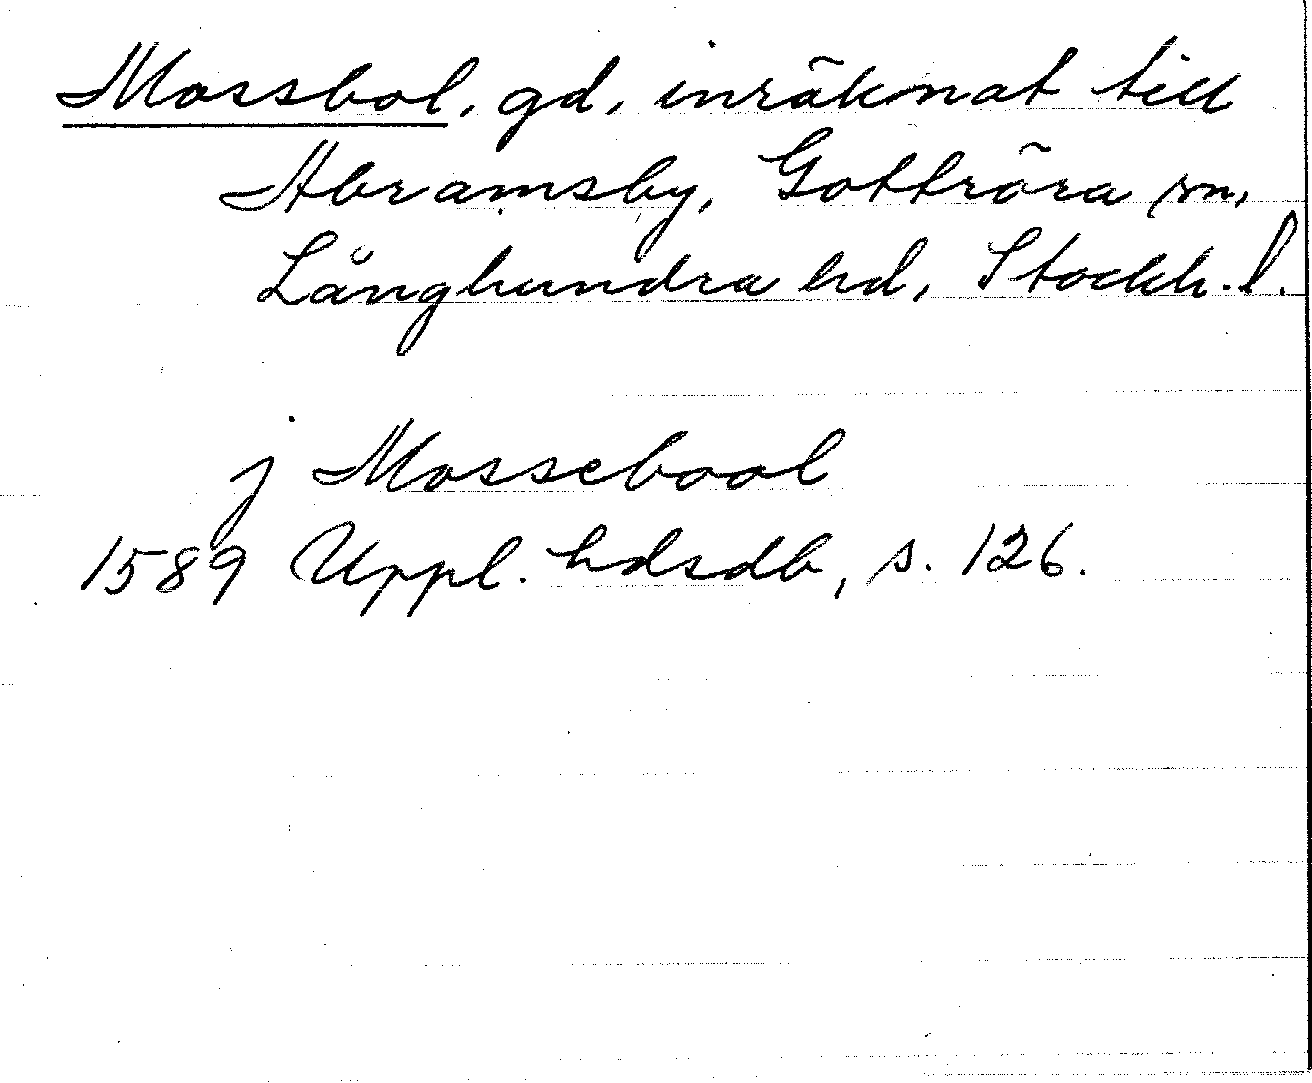 Mossbol, gd, inräknat till
Abramsby, Gottröra sn,
Långhundra hd, Stockh. l.
j Mossebool
1589 Uppl. hdsdb, s. 126.